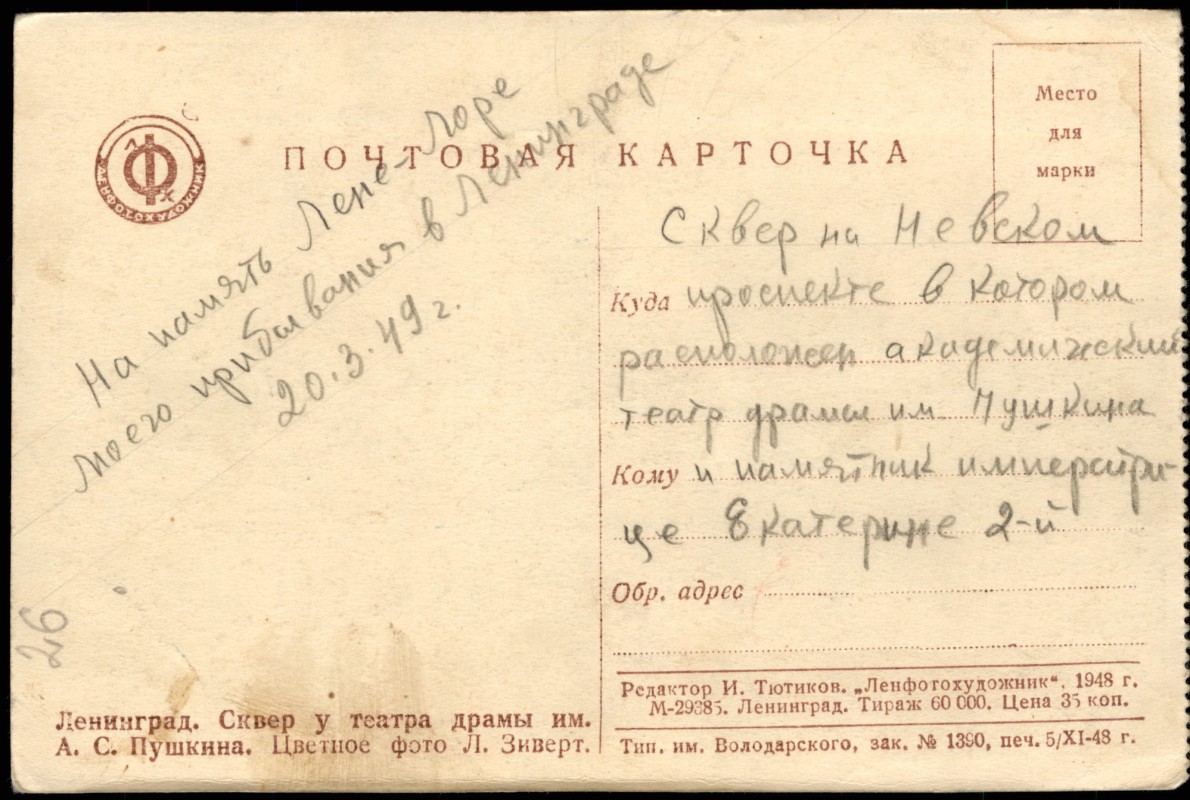 Место
для
марки
ПОЧТОВАЯ КАРТОЧКА
ЛФХ
ЛЕНФОТОХУДОЖНИК
На память Лене-Лоре
моего прибывания в Ленинграде
20.3.49 г.
26
Сквер на Невском
Куда проспекте в котором
расположен академический
театр драмы им Пушкина
Кому и памятник императри-
це Екатерине 2-й
Обр. адрес
Ленинград. Сквер у театра драмы им.
А. С. Пушкина. Цветное фото Л. Зиверт.
Редактор И. Тютиков. „Ленфотохудожник“. 1948 г.
М-29385. Ленинград. Тираж 60 000. Цена 35 коп.
Тип. им. Володарского, зак. № 1390, печ. 5/XI-48 г.